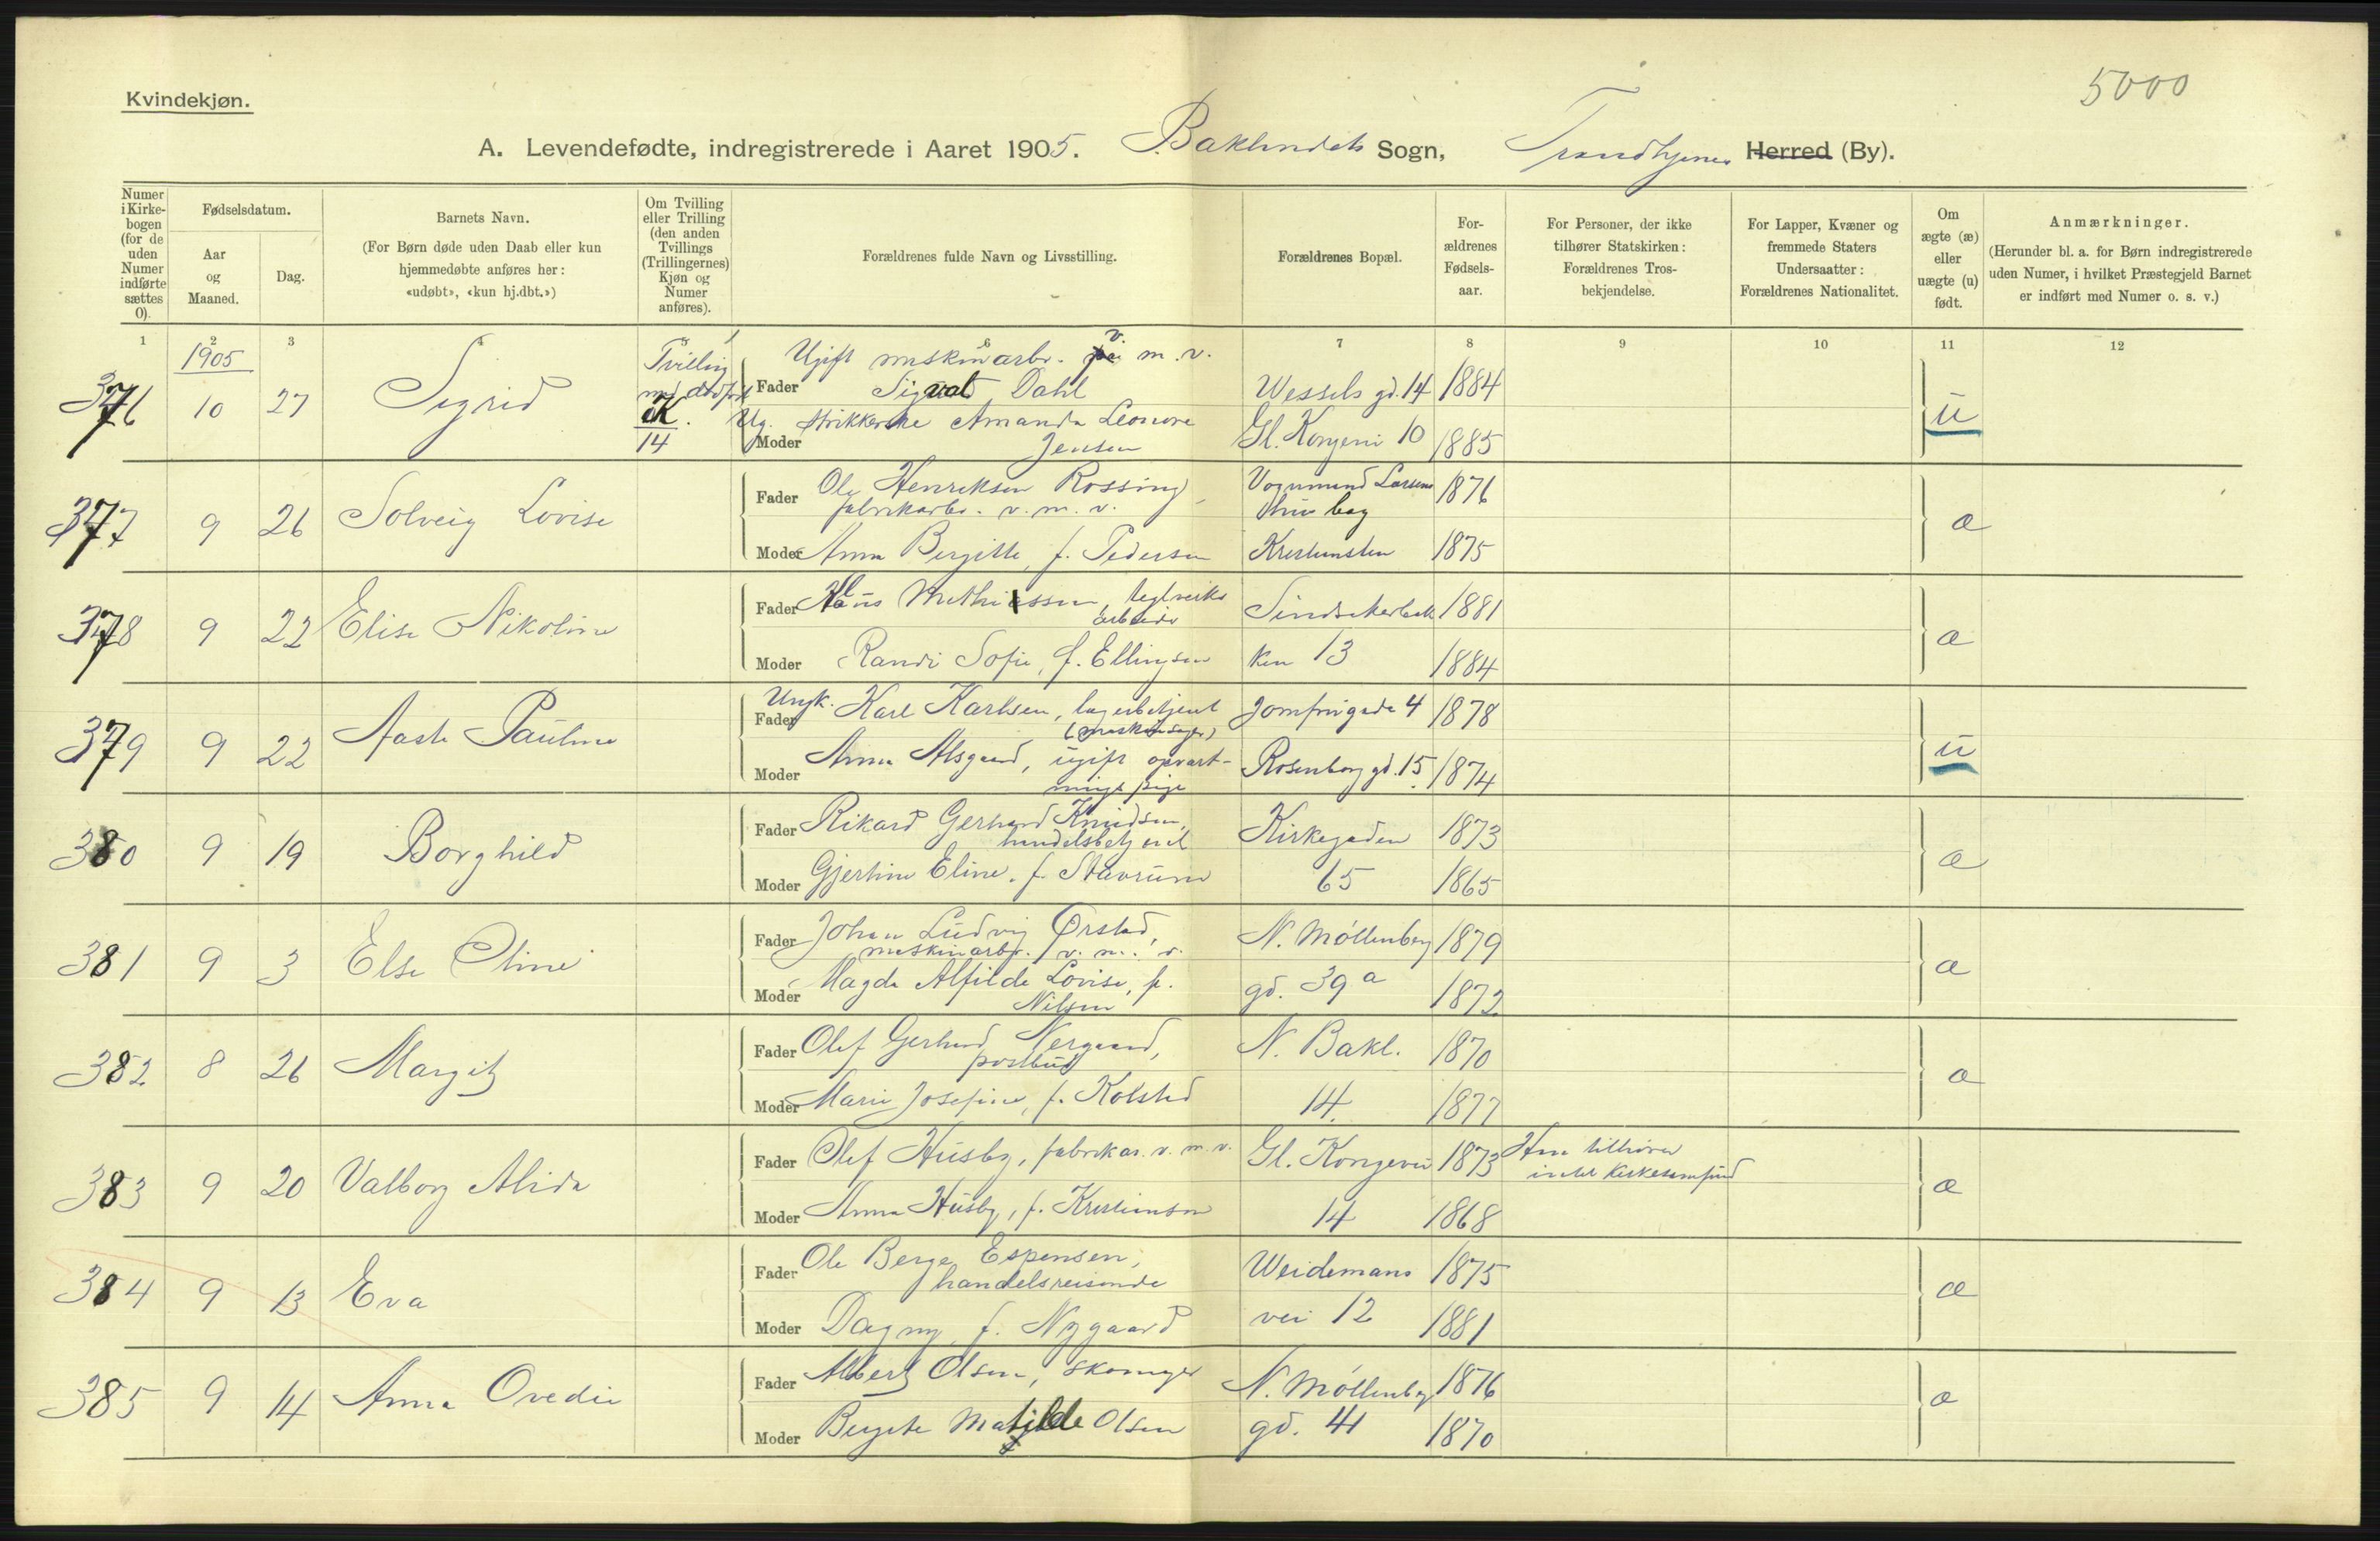 5000
Kvindekjøn.
A. Levendefødte, indregistrerede i Aaret 1905. Baklandets Sogn, Trondhjems Herred (By).
Numer i Kirkebogen (for de uden Numer indførte sættes 0).
Fødselsdatum.
Aar og Maaned.
Dag.
Barnets Navn.
(For Børn døde uden Daab eller kun hjemmedøbte anføres her: «udøbt», «kun hj.dbt.»)
Om Tvilling eller Trilling (den anden Tvillings (Trillingernes) Kjøn og Numer anføres).
Forældrenes fulde Navn og Livsstilling.
Forældrenes Bopæl.
Forældrenes Fødselsaar.
For Personer, der ikke tilhører Statskirken: Forældrenes Trosbekjendelse.
For Lapper, Kvæner og fremmede Staters Undersaatter: Forældrenes Nationalitet.
Om ægte (æ) eller uægte (u) født.
Anmærkninger.
(Herunder bl. a. for Børn indregistrerede uden Numer, i hvilket Præstegjeld Barnet er indført med Numer o. s. v.)
1 2 3 4 5 6 7 8 9 10 11 12
1905
376 10 27 Sigrid Tvilling
K. 14
Ugift maskinarb. v. m. v.
Fader Sigvat Dahl Wessels gd. 14 1884
Ug. strikkerske Amanda Leonore
Moder Jensen Gl. Kongevei 10 1885
u
377 9 26 Solveig Lovise
Fader Ole Henriksen Rossing, Vognmand Larsens 1876
fabrikarb. v. m. v. hus bag
Moder Anna Bergitte, f. Pedersen Kristiansten 1875
æ
378 9 22 Elise Nikoline
Fader Mathiassen, teglverks Sindsakerbak 1881
arbeider
Moder Randi Sofie, f. Ellingsen ken 13 1884
æ
379 9 22 Aasta Pauline
Ungk.
Fader Karl Karlsen, lagerbetjent Jomfrugade 4 1878
(maskinsager)
Moder Anna Alsgaard, ugift opvart- Rosenborg gd. 15. 1874
nings pige
u
380 9 19 Borghild
Fader Rikard Gerhard Knudsen, Kirkegaden 1873
handelsbetjent
Moder Gjertine Eline, f. Stavrum 65 1865
æ
381 9 3 Else Oline
Fader Johan Ludvig Ørstad, N. Møllenberg 1879
maskinarb. v. m. v.
Moder Magda Alfilde Lovise, f. gd. 39 a 1872
Nilsen
æ
382 8 26 Margit
Fader Olef Gerhard Nergaard, N. Bakl. 1870
postbud
Moder Marie Josefine, f. Kolstad 14. 1877
æ
383 9 20 Valborg Alida
Fader Olef Husby, fabrikar. v. m. v. Gl. Kongevei 1873 Han tilhører
intet kirkesamfund
Moder Anna Husby, f. Kristiansen 14 1868
æ
384 9 13 Eva
Fader Ole Berge Espensen, Weidemans 1875
handelsreisende
Moder Dagny, f. Nygaard vei 12 1881
æ
385 9 14 Anna Ovedie
Fader Albert Olsen, skomager N. Møllenberg 1876
Moder Bergite Matilde Olsen gd. 41 1870
æ